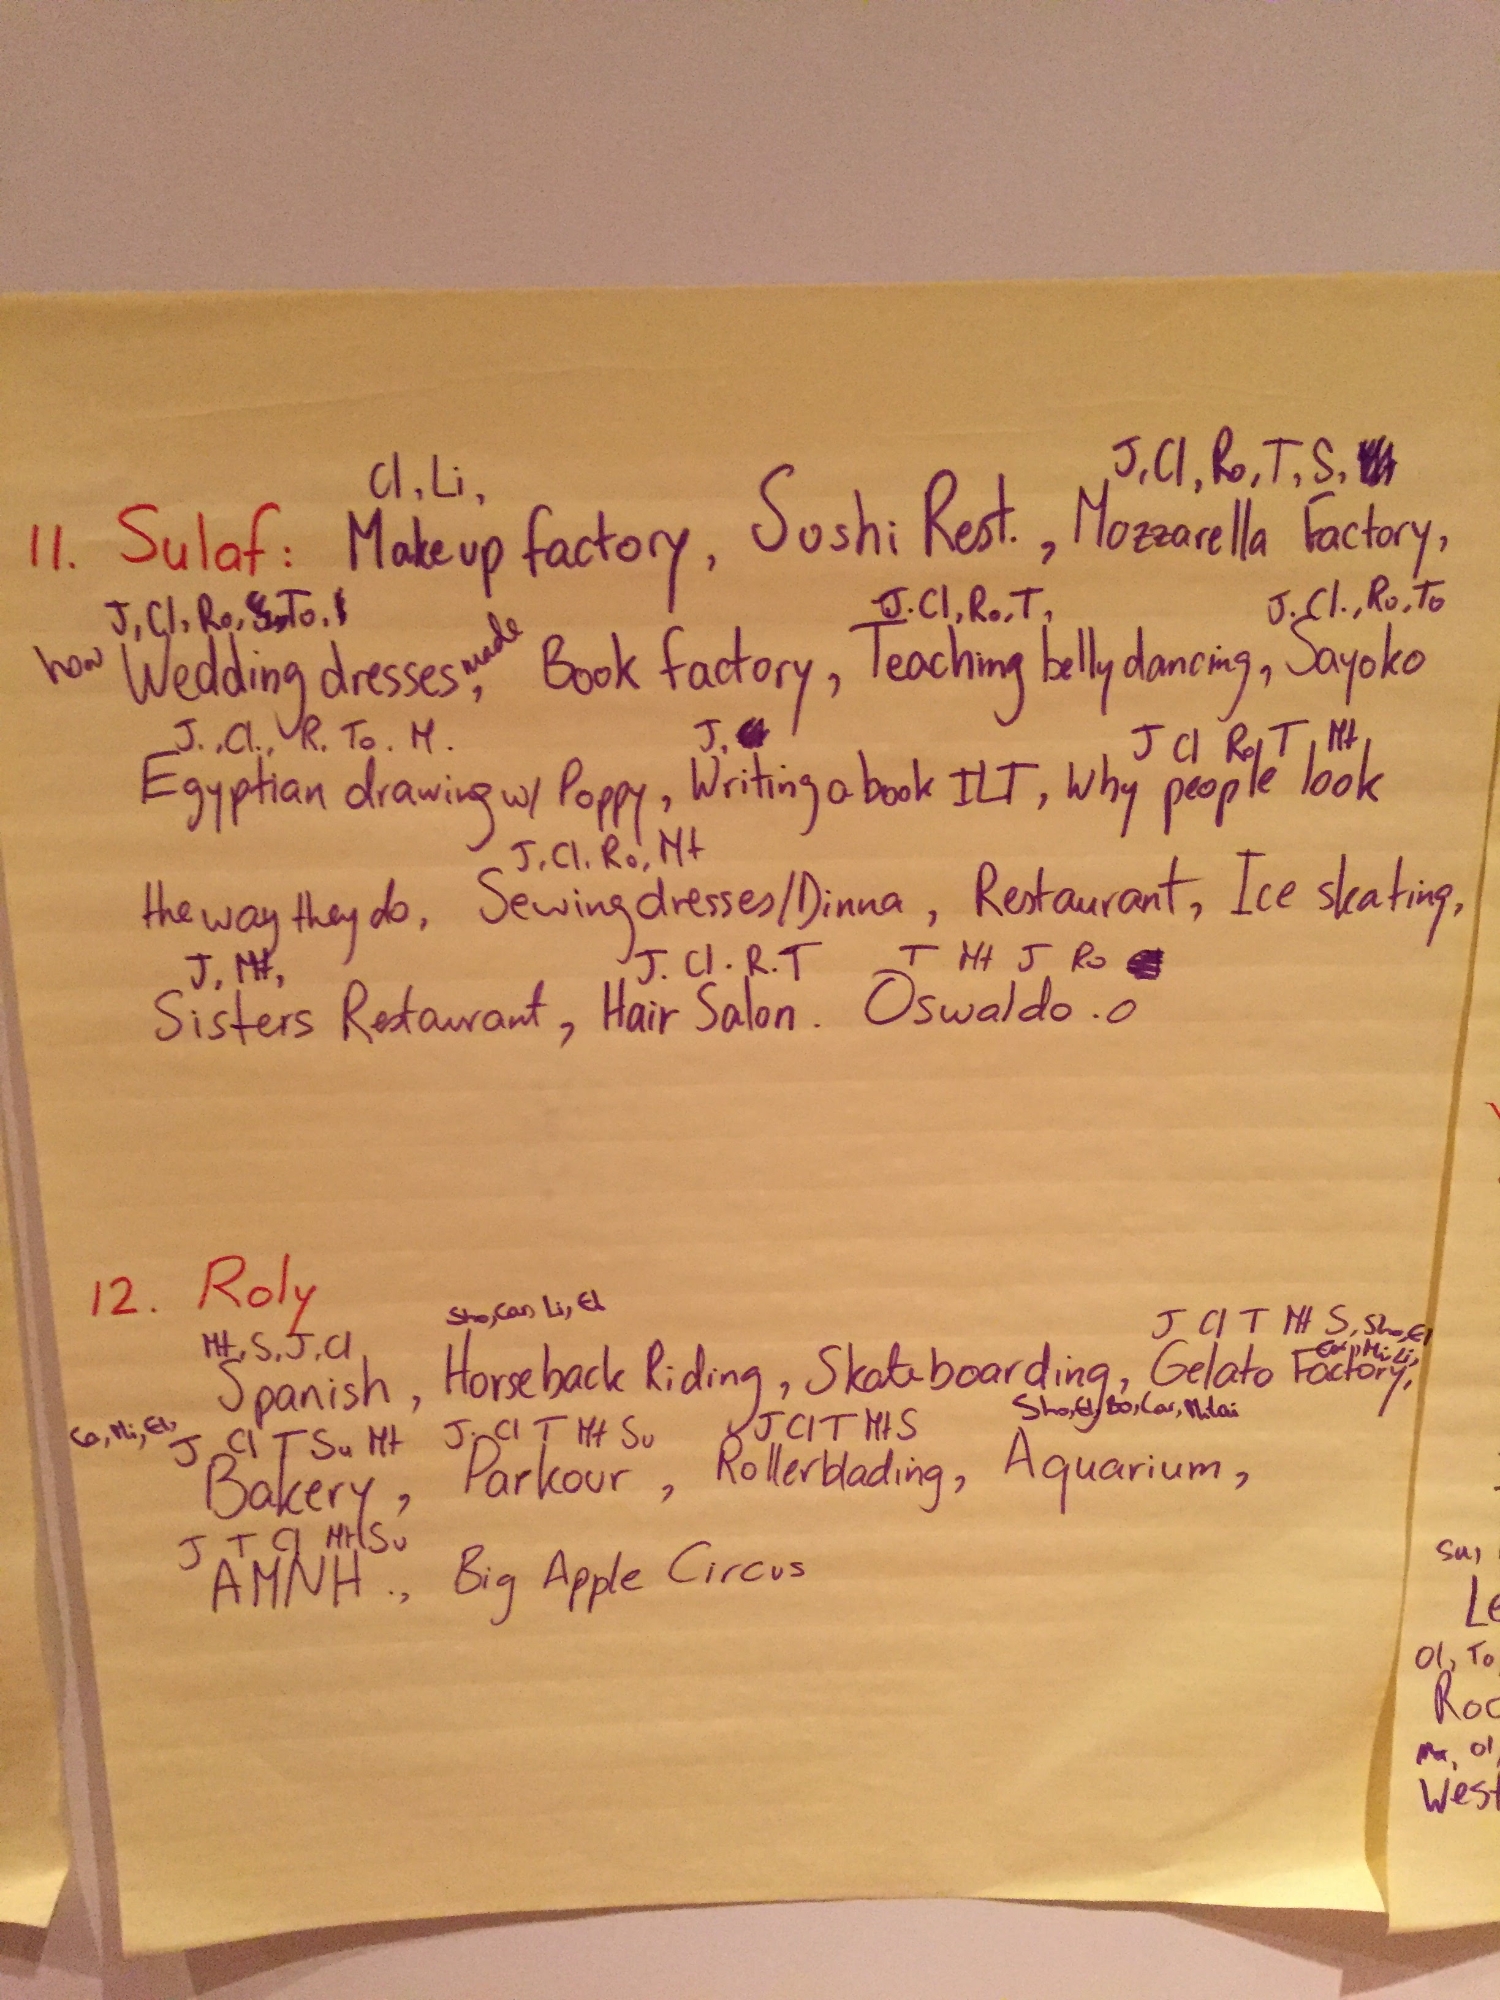 Cl, Li,
J, Cl, Ro, T, S,
11. Sulaf: Makeup factory, Sushi Rest., Mozzarella Factory,
J, Cl, Ro, To, J. Cl, Ro, T, J. Cl., Ro, To
how Wedding dresses, made Book factory, Teaching belly dancing, Sayoko
J., Cl., R. To. M. J, J Cl Ro, T, Mt,
Egyptian drawing w/ Poppy, Writing a book ILT, Why people look
J, Cl. Ro, Mt
the way they do, Sewing dresses/Dinna, Restaurant, Ice skating,
J, Mt, J. Cl. R. T T Mt J Ro
Sisters Restaurant, Hair Salon. Oswaldo.
12. Roly
Sho, Car, Li, El
Mt, S, J, Cl J Cl T Mt S, Sho, El
Mi, Li,
Spanish, Horseback Riding, Skateboarding, Gelato Factory,
Sho, El, Bo, Car, Milai
Ca, Mi, El, J Cl T Su Mt J. Cl T Mt Su J Cl T Mt S
Bakery, Parkour, Rollerblading, Aquarium,
J T Cl Mt Su
AMNH., Big Apple Circus
Su,
Le
Ol, To,
Roc
Ma, Ol,
West